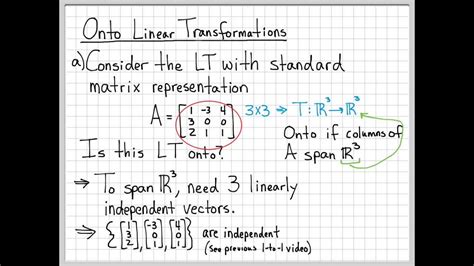 Onto Linear Transformations
a) Consider the LT with standard
matrix representation
A = [1 -3 4
3 0 0
2 1 1] 3x3 → T: ℝ³→ℝ³
Onto if columns of
A span ℝ³
Is this LT onto?
⇒ To span ℝ³, need 3 linearly
independent vectors.
⇒ {[1 3 2], [-3 0 1], [4 0 1]} are independent
(see previous 1-to-1 video)